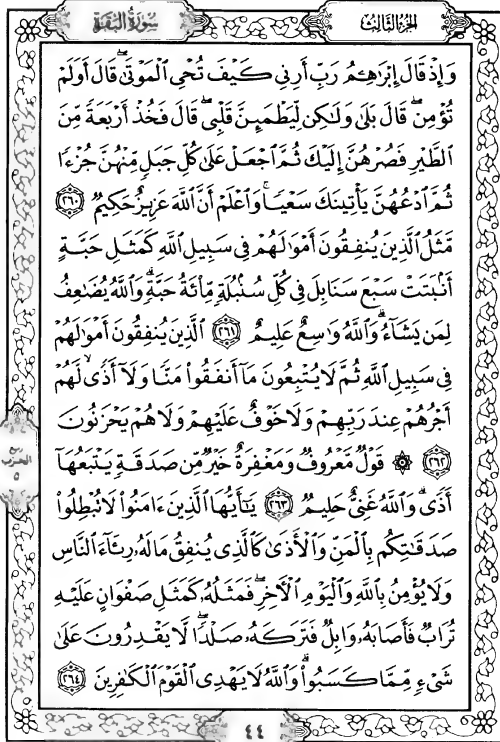 سورة البقرة
الجزء الثالث
وَإِذْ قَالَ إِبْرَٰهِـۧمُ رَبِّ أَرِنِى كَيْفَ تُحْىِ ٱلْمَوْتَىٰ ۖ قَالَ أَوَلَمْ
تُؤْمِن ۖ قَالَ بَلَىٰ وَلَـٰكِن لِّيَطْمَئِنَّ قَلْبِى ۖ قَالَ فَخُذْ أَرْبَعَةً مِّنَ
ٱلطَّيْرِ فَصُرْهُنَّ إِلَيْكَ ثُمَّ ٱجْعَلْ عَلَىٰ كُلِّ جَبَلٍ مِّنْهُنَّ جُزْءًا
ثُمَّ ٱدْعُهُنَّ يَأْتِينَكَ سَعْيًا ۚ وَٱعْلَمْ أَنَّ ٱللَّهَ عَزِيزٌ حَكِيمٌ ٢٦٠
مَّثَلُ ٱلَّذِينَ يُنفِقُونَ أَمْوَٰلَهُمْ فِى سَبِيلِ ٱللَّهِ كَمَثَلِ حَبَّةٍ
أَنۢبَتَتْ سَبْعَ سَنَابِلَ فِى كُلِّ سُنۢبُلَةٍ مِّا۟ئَةُ حَبَّةٍ ۗ وَٱللَّهُ يُضَـٰعِفُ
لِمَن يَشَآءُ ۗ وَٱللَّهُ وَٰسِعٌ عَلِيمٌ ٢٦١ ٱلَّذِينَ يُنفِقُونَ أَمْوَٰلَهُمْ
فِى سَبِيلِ ٱللَّهِ ثُمَّ لَا يُتْبِعُونَ مَآ أَنفَقُوا۟ مَنًّا وَلَآ أَذًى ۙ لَّهُمْ
أَجْرُهُمْ عِندَ رَبِّهِمْ وَلَا خَوْفٌ عَلَيْهِمْ وَلَا هُمْ يَحْزَنُونَ
٢٦٢ ۞ قَوْلٌ مَّعْرُوفٌ وَمَغْفِرَةٌ خَيْرٌ مِّن صَدَقَةٍ يَتْبَعُهَآ
أَذًى ۗ وَٱللَّهُ غَنِىٌّ حَلِيمٌ ٢٦٣ يَـٰٓأَيُّهَا ٱلَّذِينَ ءَامَنُوا۟ لَا تُبْطِلُوا۟
صَدَقَـٰتِكُم بِٱلْمَنِّ وَٱلْأَذَىٰ كَٱلَّذِى يُنفِقُ مَالَهُۥ رِئَآءَ ٱلنَّاسِ
وَلَا يُؤْمِنُ بِٱللَّهِ وَٱلْيَوْمِ ٱلْـَٔاخِرِ ۖ فَمَثَلُهُۥ كَمَثَلِ صَفْوَانٍ عَلَيْهِ
تُرَابٌ فَأَصَابَهُۥ وَابِلٌ فَتَرَكَهُۥ صَلْدًا ۖ لَّا يَقْدِرُونَ عَلَىٰ
شَىْءٍ مِّمَّا كَسَبُوا۟ ۗ وَٱللَّهُ لَا يَهْدِى ٱلْقَوْمَ ٱلْكَـٰفِرِينَ ٢٦٤
ربع
الحزب
٥
٤٤